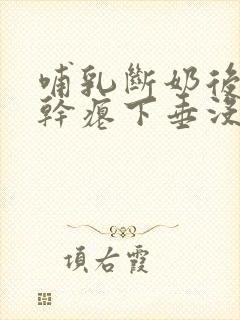 哺乳斷奶後
幹瘪下垂沒
項右霞